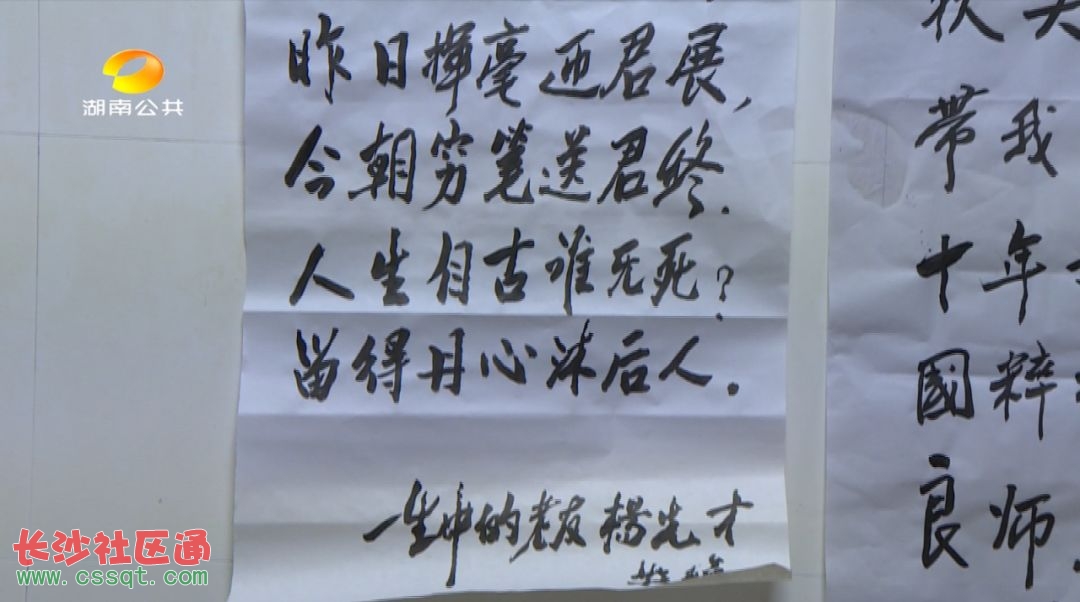 湖南公共
昨日挥毫迎君展，
今朝穷笔送君终．
人生自古谁无死？
留得丹心沐后人．
一生中的老友杨先才
带我
十年
國粹
良师
长沙社区通
www.cssqt.com